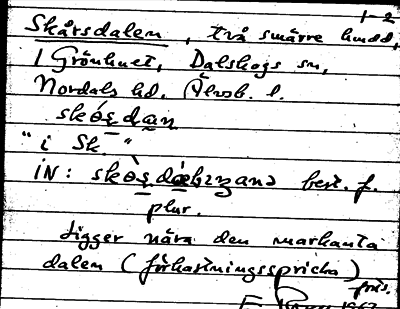 1-2
Skårsdalen, två smärre hmdd,
i Grönhult, Dalskogs sn,
Nordals hd. Älvsb. l.
skó̀ʂdan
"i Sk. "
iN: skò̀ʂdæbɪŋana best. f.
plur.
Ligger nära den markanta
dalen (förkastningsspricka)
1967